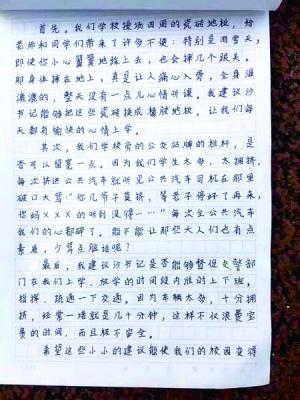 首先。我们学校操场四周的瓷砖地板，给
老师和同学们带来了许多不便：特别是雨雪天，
即使你小心翼翼地踏上去，也会摔几个跟头。
那身体摔在地上，真是让人痛心入骨，全身湿
漉漉的，整天没有一点儿心情听课。我建议沙
书记能够把这些瓷砖换成橡胶地板。让我们每
天都有愉快的心情上学。
其次，我们学校旁的公交站牌的栏杆，是
否可以留宽一点。因为我们学生太多，太拥挤，
每次挤进公共汽车就听见公共汽车司机在那里
破口大骂“你几爷子莫挤，等老子停好了再来，
你妈×××的听到没得……”每次坐公共汽车
我们的心都碎了。能不能让那些大人们也有点
素质，少冒点脏话呢？
最后，我建议沙书记是否能够督促交警部
门在我们上学、放学的时间段内准时上下班，
指挥、疏通一下交通。因为车辆太多，十分拥
挤，经常一堵就是几十分钟，这样不仅浪费宝
贵的时间，而且极不安全。
希望这些小小的建议能使我们的校园变得